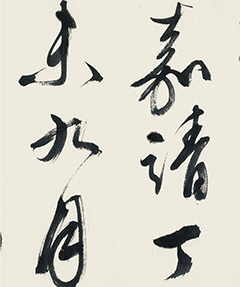 嘉靖丁
未九月